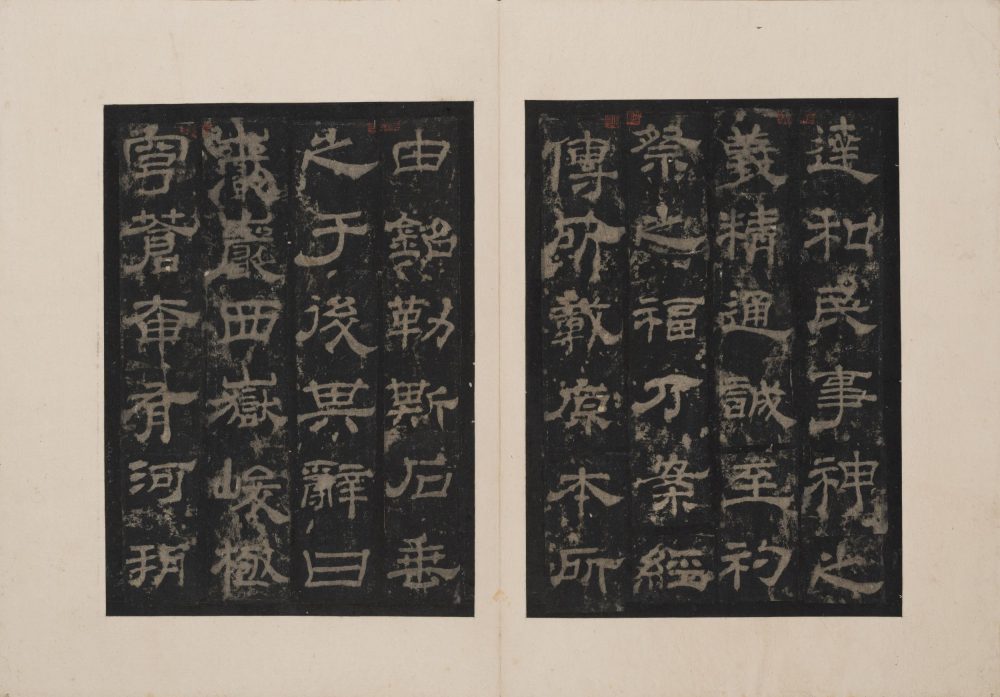 達和民事神之
義精通誠至礿
祭之福乃案經
傳所載原本所
由銘勒斯石垂
之于後其辭曰
巖巖西嶽峻極
穹蒼奄有河朔